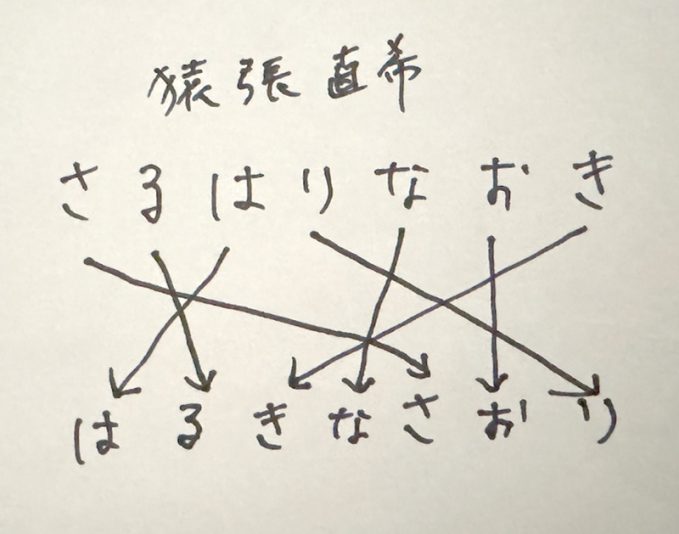 猿張直希
さるはりなおき
はるきなさおり